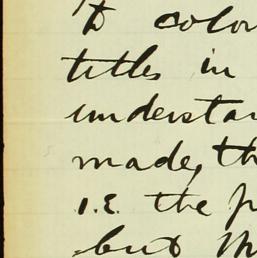 It colou
titles in
understan
made, th
i.e. the p
but th